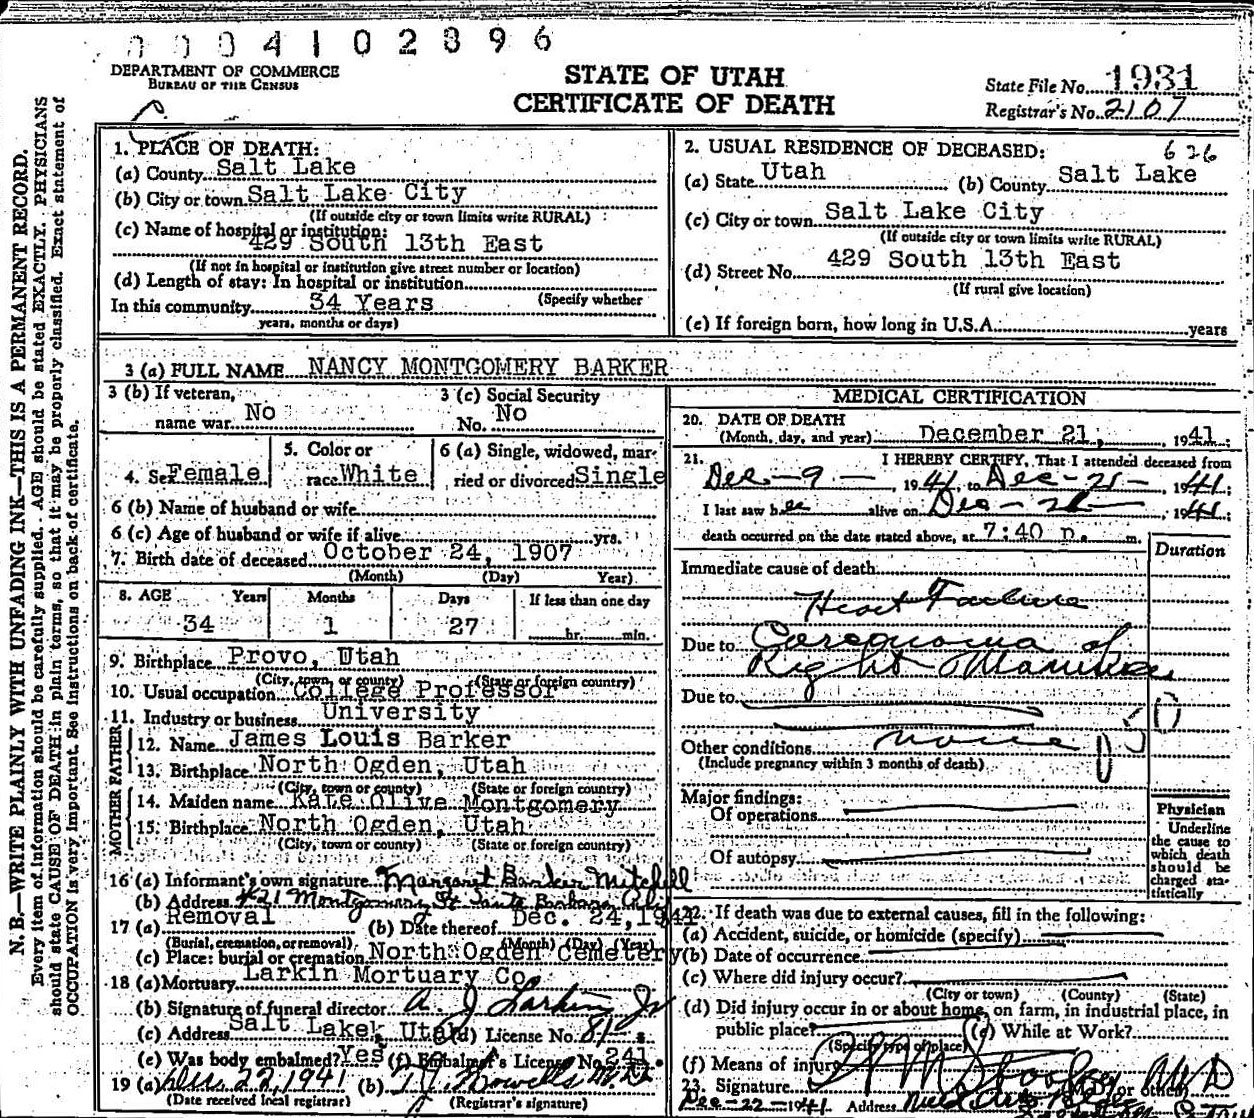 0004102896
DEPARTMENT OF COMMERCE
BUREAU OF THE CENSUS
STATE OF UTAH
CERTIFICATE OF DEATH
State File No. 1981
Registrar's No. 2107
N. B.—WRITE PLAINLY WITH UNFADING INK—THIS IS A PERMANENT RECORD.
Every item of information should be carefully supplied. AGE should be stated EXACTLY. PHYSICIANS
should state CAUSE OF DEATH in plain terms, so that it may be properly classified. Exact statement of
OCCUPATION is very important. See instructions on back of certificate.
1. PLACE OF DEATH:
(a) County Salt Lake
(b) City or town Salt Lake City
(If outside city or town limits write RURAL)
(c) Name of hospital or institution:
429 South 13th East
(If not in hospital or institution give street number or location)
(d) Length of stay: In hospital or institution
In this community 34 Years (Specify whether
years, months or days)
2. USUAL RESIDENCE OF DECEASED: 626
(a) State Utah (b) County Salt Lake
(c) City or town Salt Lake City
(If outside city or town limits write RURAL)
(d) Street No. 429 South 13th East
(If rural give location)
(e) If foreign born, how long in U.S.A. years
3 (a) FULL NAME NANCY MONTGOMERY BARKER
3 (b) If veteran, name war No
3 (c) Social Security No. No
4. Sex Female
5. Color or race White
6 (a) Single, widowed, married or divorced Single
6 (b) Name of husband or wife
6 (c) Age of husband or wife if alive yrs.
7. Birth date of deceased October 24, 1907
(Month) (Day) Year)
8. AGE Years Months Days If less than one day
34 1 27 hr. min.
9. Birthplace Provo, Utah
(City, town, or county) (State or foreign country)
10. Usual occupation College Professor
11. Industry or business University
FATHER
12. Name James Louis Barker
13. Birthplace North Ogden, Utah
(City, town or county) (State or foreign country)
MOTHER
14. Maiden name Kate Olive Montgomery
15. Birthplace North Ogden, Utah
(City, town or county) (State or foreign country)
16 (a) Informant's own signature Margaret Barker Mitchell
(b) Address #21 Montgomery St Santa Barbara Calif
17 (a) Removal (b) Date thereof Dec. 24, 1941
(Burial, cremation, or removal) (Month) (Day) (Year)
(c) Place: burial or cremation North Ogden Cemetery
18 (a) Mortuary Larkin Mortuary Co.
(b) Signature of funeral director A J Larkin Jr
(c) Address Salt Lake, Utah (d) License No. 81
(e) Was body embalmed? Yes (f) Embalmer's License No. 241.
19 (a) Dec. 22, 1941 (b) T J Howells M.D.
(Date received local registrar) (Registrar's signature)
MEDICAL CERTIFICATION
20. DATE OF DEATH
(Month, day, and year) December 21, 1941;
21. I HEREBY CERTIFY, That I attended deceased from
Dec-9-, 1941, to Dec-21-, 1941;
I last saw her alive on Dec-21-, 1941;
death occurred on the date stated above, at 7:40 p. m.
Duration
Immediate cause of death
Heart Failure
Due to Carcinoma of
Right
Due to
50
Other conditions none
(Include pregnancy within 3 months of death)
Major findings:
Of operations
Of autopsy
Physician
Underline
the cause to
which death
should be
charged sta-
tistically
22. If death was due to external causes, fill in the following:
(a) Accident, suicide, or homicide (specify)
(b) Date of occurrence
(c) Where did injury occur?
(City or town) (County) (State)
(d) Did injury occur in or about home, on farm, in industrial place, in
public place? (e) While at Work?
(Specify type of place)
(f) Means of injury
23. Signature M.D. or other
Dec-22-1941 Address